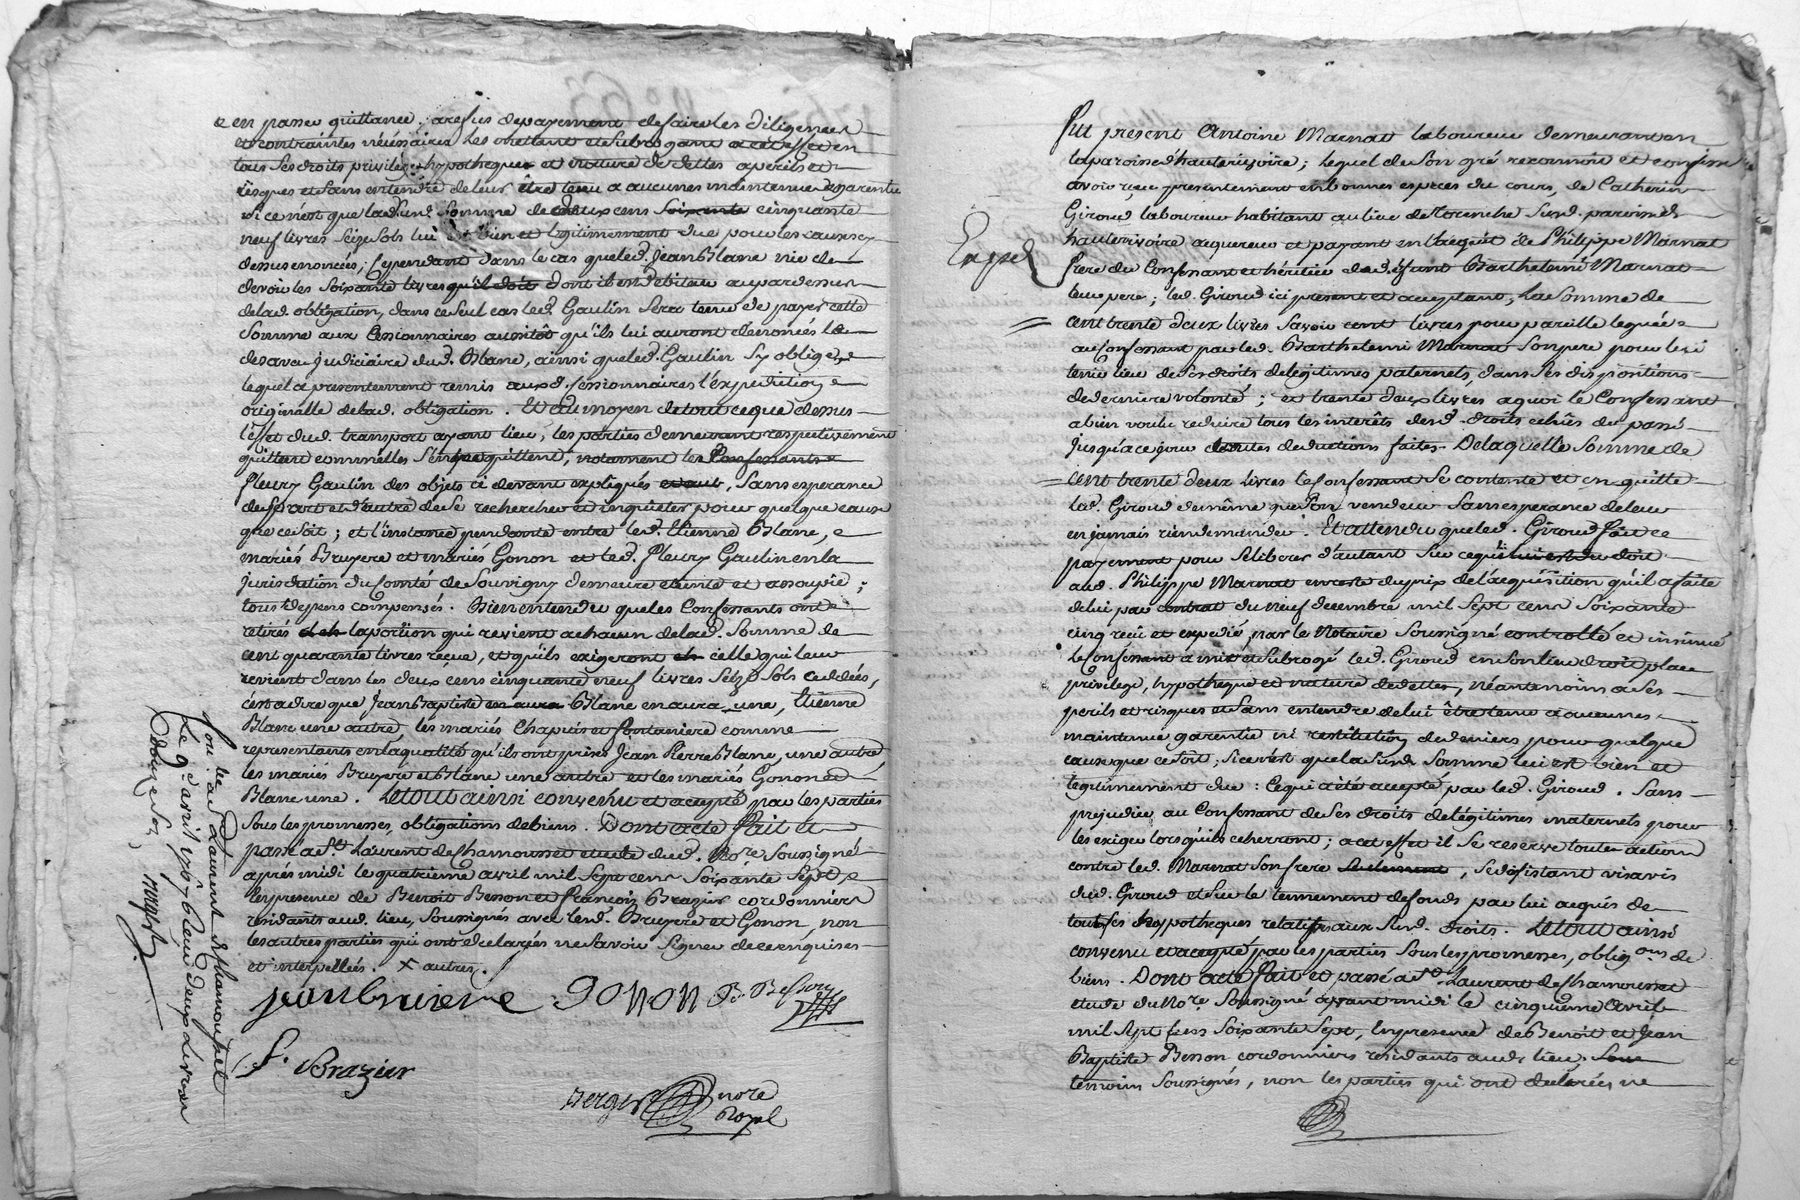 en passer quittance, a refus de payement de faire les diligences
et contraintes nécéssaires les mettant et subrogeant a cet effet en
tous ses droits privileges hypotheques et nature de dettes a perils et
risques et sans entendre de leur être tenu a aucunes maintenue garentie
si ce n'est que lad. susd. somme de deux cens soixante cinquante
neuf livres seize sols lui est bien et legitimement due pour les causes
dessus enoncées; Cependant dans le cas que led. Jean Blanc nie de
devoir les soixante livres qu'il doit dont il est debiteur au pardessus
de lad. obligation, dans ce seul cas led. Gaulin sera tenu de payer cette
somme aux Cessionnaires aussitôt qu'ils lui auront dénoncés le
desaveu judiciaire dud. Blanc, ainsi que led. Gaulin s'y oblige,
lequel a presentement remis auxd. cessionnaires l'expedition
originalle de lad. obligation. Et au moyen de tout ce que dessus
l'effet dud. transport ayant lieu, les parties demeurent respectivement
quittes et comme telles s'en quittent, notament les Confessants
fleury Gaulin des objets ci devant expliqués, sans esperance
de part et d'autre de se rechercher et inquieter pour quelque cause
que ce soit; et l'instance pendante entre led. Etienne Blanc,
mariés Bruyere et mariés Gonon et led. fleury Gaulin en la
jurisdiction du Comté de Souvigny demeure eteinte et assoupie;
tous depens compensés. Bien entendu que les Confessants ont
retirés la portion qui revient a chacun de lad. somme de
cent quarante livres reçue, et qu'ils exigeront celle qui leur
revient dans les deux cens cinquante neuf livres seize sols cedées,
c'est a dire que Jean Baptiste en aura Blanc en aura une, Etienne
Blanc une autre, les mariés Chapuis et fontaniere comme
representants en la qualité qu'ils ont prises Jean Pierre Blanc, une autre
les mariés Bruyere et Blanc une autre et les mariés Gonon et
Blanc une. Le tout ainsi convenu et accepté par les parties
sous les promesses, obligations de biens. Dont acte fait et
passé a St. Laurent de Chamousset etude dud. Nore. soussigné
après midi le quatrieme avril mil sept cens soixante sept,
En presence de Benoit Besson et françois Brazier cordonniers
residants aud. lieu, soussignés avec lesd. Bruyere et Gonon, non
les autres parties qui ont declarées ne savoir signer de ce enquises
et interpellées. X autres.
jean bruiere gonon B. Besson
f. Brazier
verger nore
Royal
Con. lée a St Laurent de chamousset
Le 9e avril 1767 Reçu deux Livres
douze sols
verger
fut present Antoine Marnat laboureur demeurant en
la paroisse d'hauterivoire; lequel de son gré reconnoit et confesse
avoir reçu presentement en bonnes especes du cours, de Catherin
Giroud laboureur habitant au lieu de Torenche susd. paroisse d'
hauterivoire acquereur et payant en l'acquit de Philippe Marnat
frere du Confessant et héritier de deffunt Barthelemi Marnat
leur pere; led. Giroud ici present et acceptant, La somme de
cent trente deux livres savoir cent livres pour pareille leguée
au Confessant par led. Barthelemi Marnat son pere pour lui
tenir lieu de ses droits de legitimes paternels, dans ses dispositions
de derniere volonté; et trente deux livres a quoi le Confessant
a bien voulu reduire tous les interêts desd. droits echûs du passé
jusqu'à ce jour toutes deductions faites. De laquelle somme de
cent trente deux livres le Confessant se contente et en quitte
led. Giroud de même que son vendeur sans esperance de leur
en jamais rien demander. Et attendu que led. Giroud fait ce
payement pour se liberer d'autant sur ce qu'il lui est du doit
aud. Philippe Marnat en reste du prix de l'acquisition qu'il a faite
de lui par contrat du neuf decembre mil sept cens soixante
cinq reçu et expedié par le Notaire soussigné controllé et insinué
Le Confessant a mis et subrogé led. Giroud en son lieu droit place
privilege, hypotheque et nature de dettes, néantmoins a ses
perils et risques et sans entendre de lui être tenu a aucunes
maintenue garentie ni restitution de deniers pour quelque
cause que ce soit; si ce n'est que la susd. somme lui est bien et
legitimement due: Ce qui a été accepté par led. Giroud. Sans
prejudice au Confessant de ses droits de légitimes maternels pour
les exiger lorsqu'ils echerront; a cet effet il se reserve toute action
contre led. Marnat son frere seulement, se desistant vis a vis
dud. Giroud et sur le tennement de fonds par lui acquis de
toutes ses hypotheques relatifs aux susd. droits. Le tout ainsi
convenu et accepté par les parties sous les promesses, obligons de
biens. Dont acte fait et passé a St. Laurent de Chamousset
etude du Nore. soussigné avant midi le cinquieme avril
mil sept cens soixante sept, En presence de Benoit et Jean
Baptiste Besson cordonniers residants aud. lieu,
temoins soussignés, non les parties qui ont declarées ne